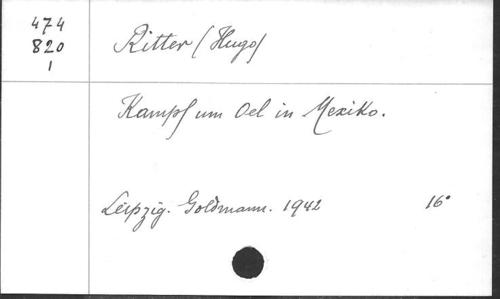 474
820
1
Ritter (Hugo)
Kampf um Oel in Mexiko.
Leipzig. Goldmann. 1942 16°